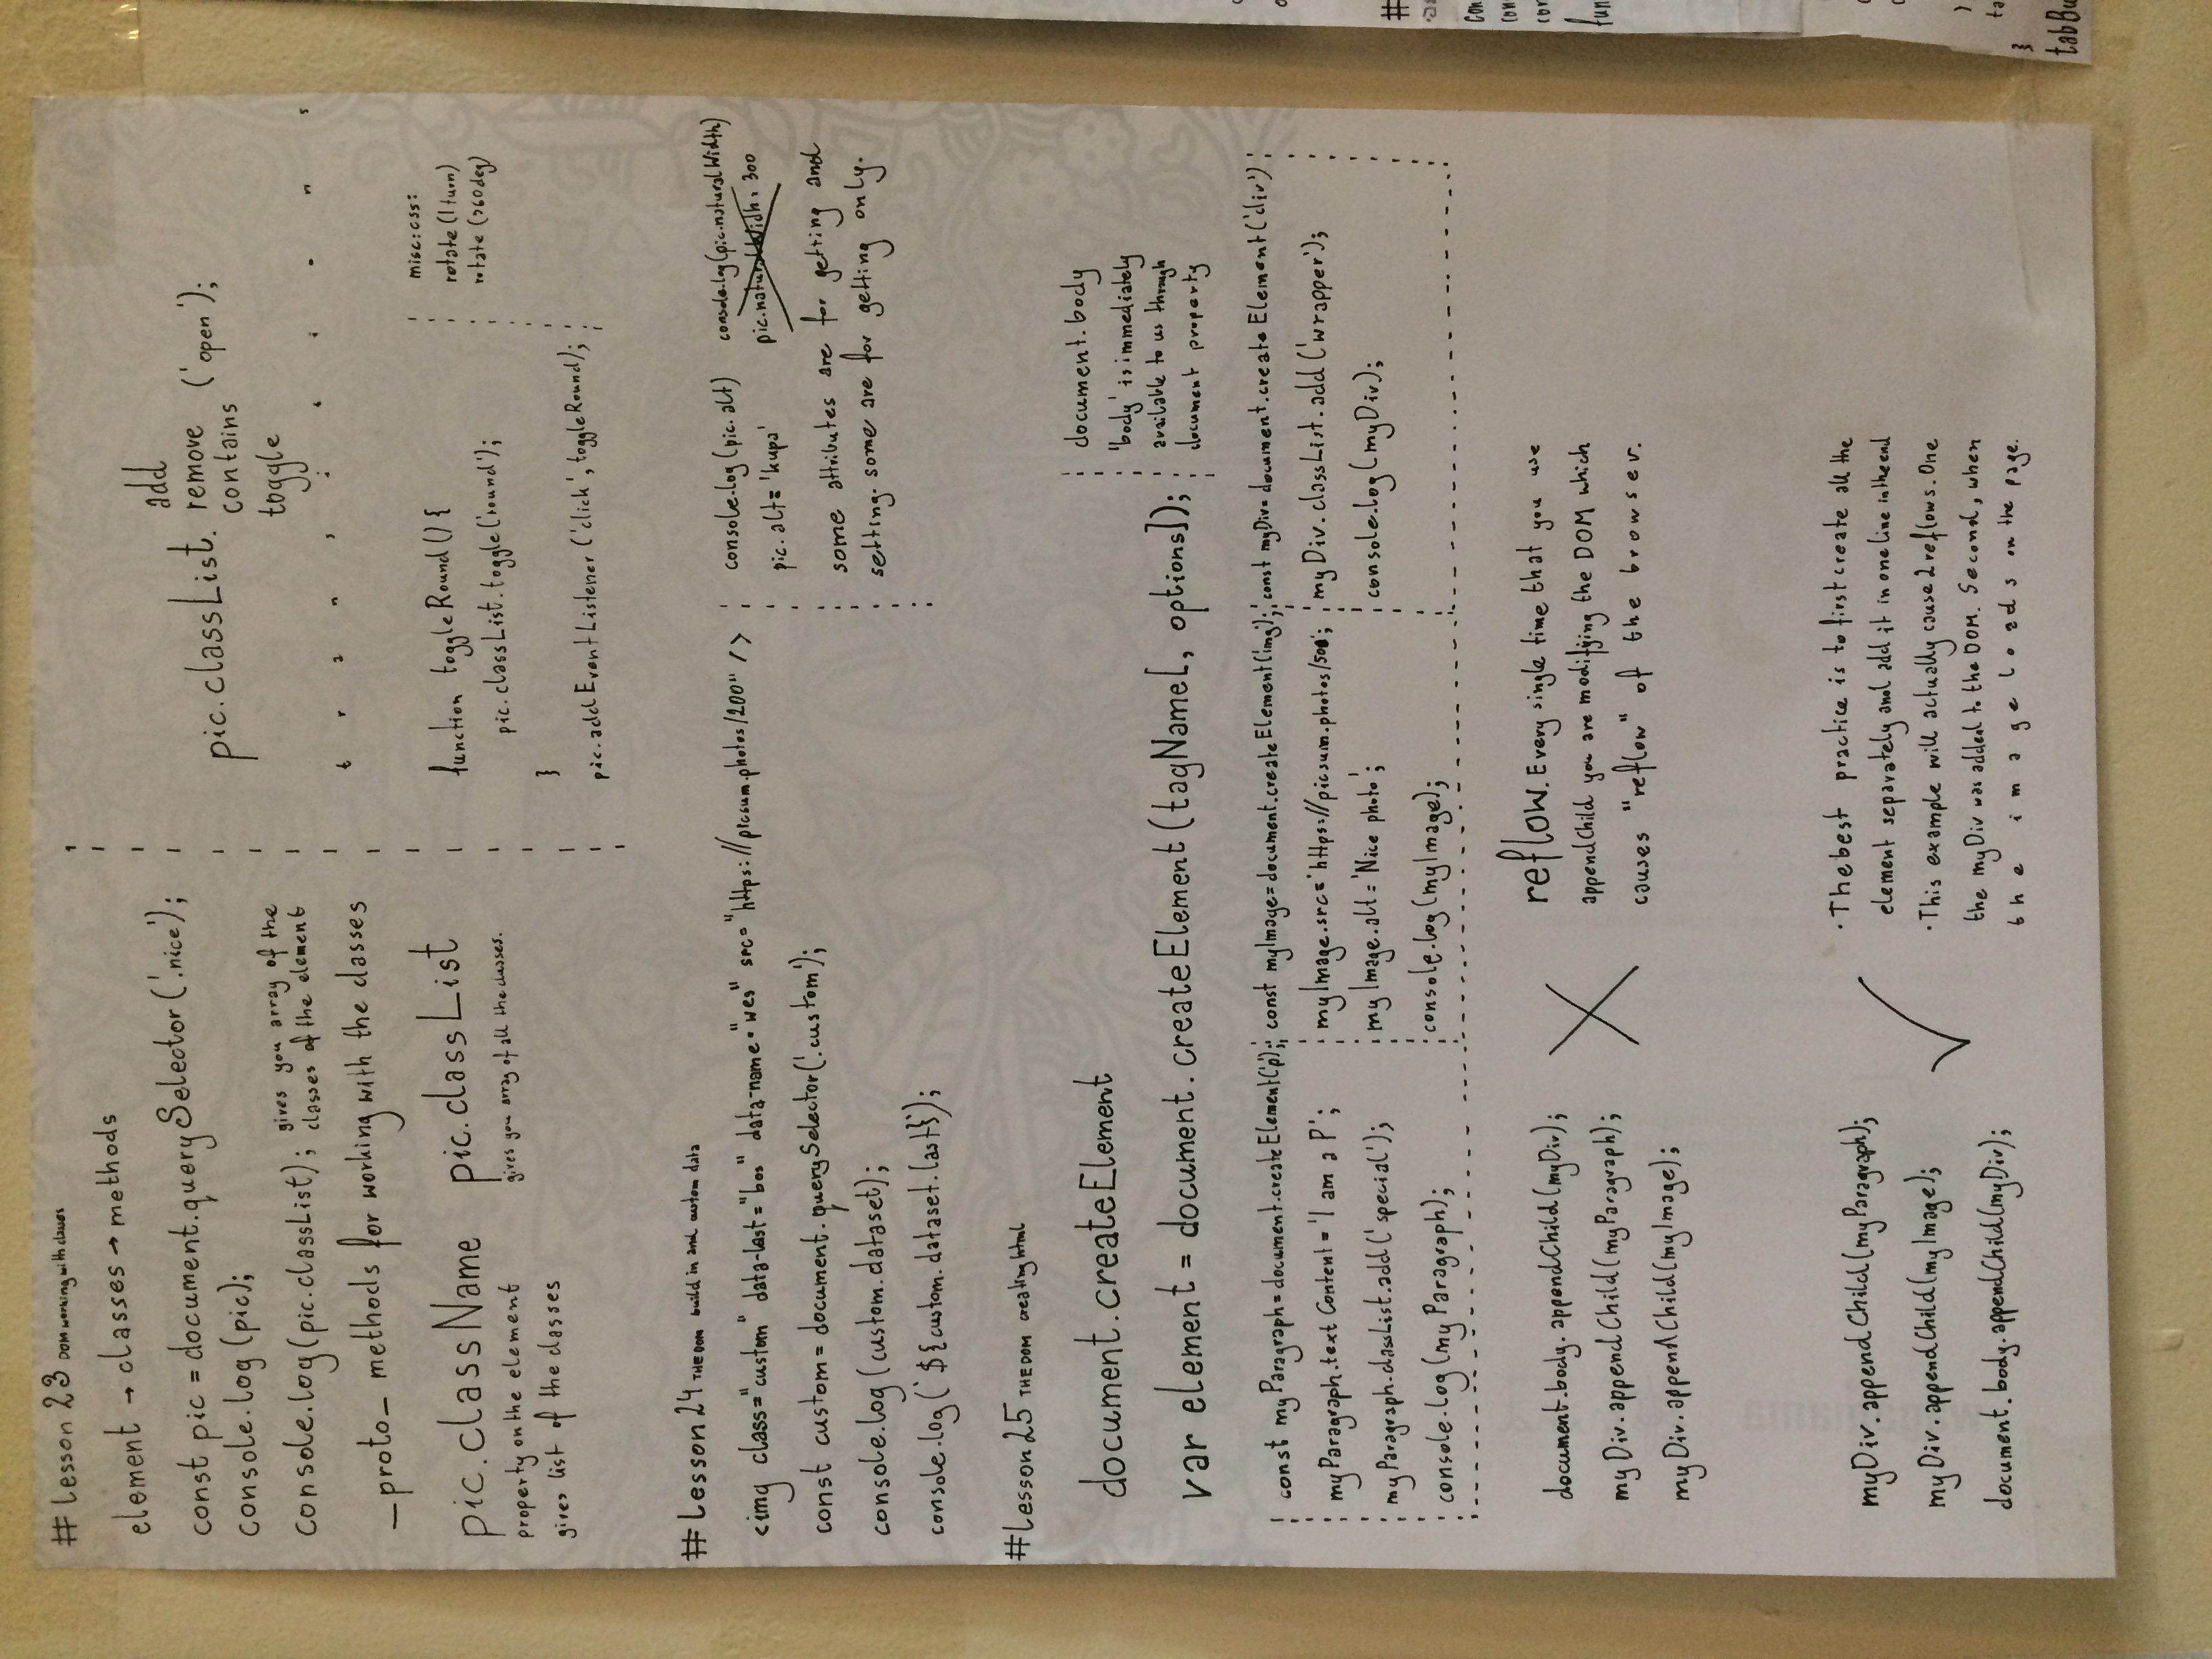 # Lesson 23 DOM working with classes
element → classes → methods
const pic = document.querySelector('.nice');
console.log(pic);
console.log(pic.classList); gives you array of the
classes of the element
_proto_ methods for working with the classes
pic.className
property on the element
gives list of the classes
pic.classList
gives you array of all the classes.
add
pic.classList. remove ('open');
contains
toggle
transitions
function toggleRound() {
pic.classList.toggle('round');
}
pic.addEventListener('click', toggleRound);
misc:css:
rotate (1turn)
rotate (360deg)
# Lesson 24 THE DOM build in and custom data
<img class="custom" data-last="bos" data-name="wes" src="https://picsum.photos/200" />
const custom = document.querySelector('.custom');
console.log(custom.dataset);
console.log(`${custom.dataset.last}`);
console.log(pic.alt)
pic.alt='kupa'
console.log(pic.naturalWidth)
pic.naturalWidth = 300
some attributes are for getting and
setting. some are for getting only.
# Lesson 25 THE DOM creating html
document.createElement
var element = document.createElement(tagName[, options]);
document.body
'body' is immediately
available to us through
document property
const myParagraph = document.createElement('p');
myParagraph.textContent = 'I am a P';
myParagraph.classList.add('special');
console.log(myParagraph);
const myImage = document.createElement('img');
myImage.src='https://picsum.photos/500';
myImage.alt = 'Nice photo';
console.log(myImage);
const myDiv = document.createElement('div')
myDiv.classList.add('wrapper');
console.log(myDiv);
document.body.appendChild(myDiv);
myDiv.appendChild(myParagraph);
myDiv.appendChild(myImage);
reflow. Every single time that you use
appendChild you are modifying the DOM which
causes "reflow" of the browser.
myDiv.appendChild(myParagraph);
myDiv.appendChild(myImage);
document.body.appendChild(myDiv);
· The best practice is to first create all the
element separately and add it in one line in the end
· This example will actually cause 2 reflows. One
the myDiv was added to the DOM. Second, when
the image loads on the page.
#
con
con
con
fun
)
ta
}
tabBu